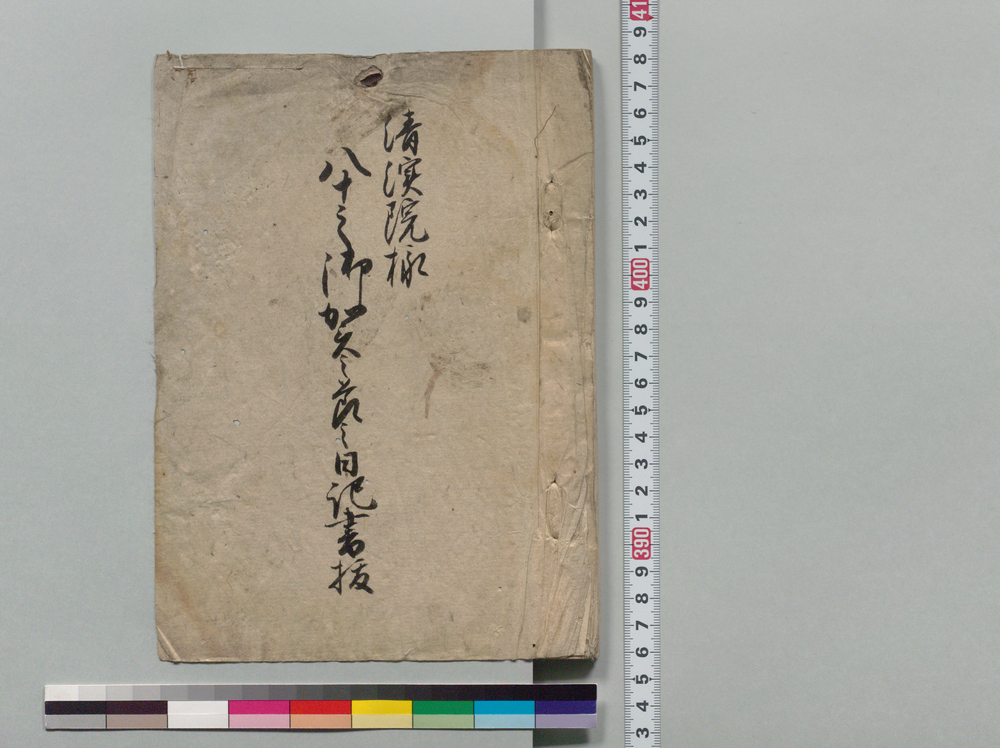 清渓院様
八十之御賀之節之日記書抜
41
9
8
7
6
5
4
3
2
1
400
9
8
7
6
5
4
3
2
1
390
9
8
7
6
5
4
3